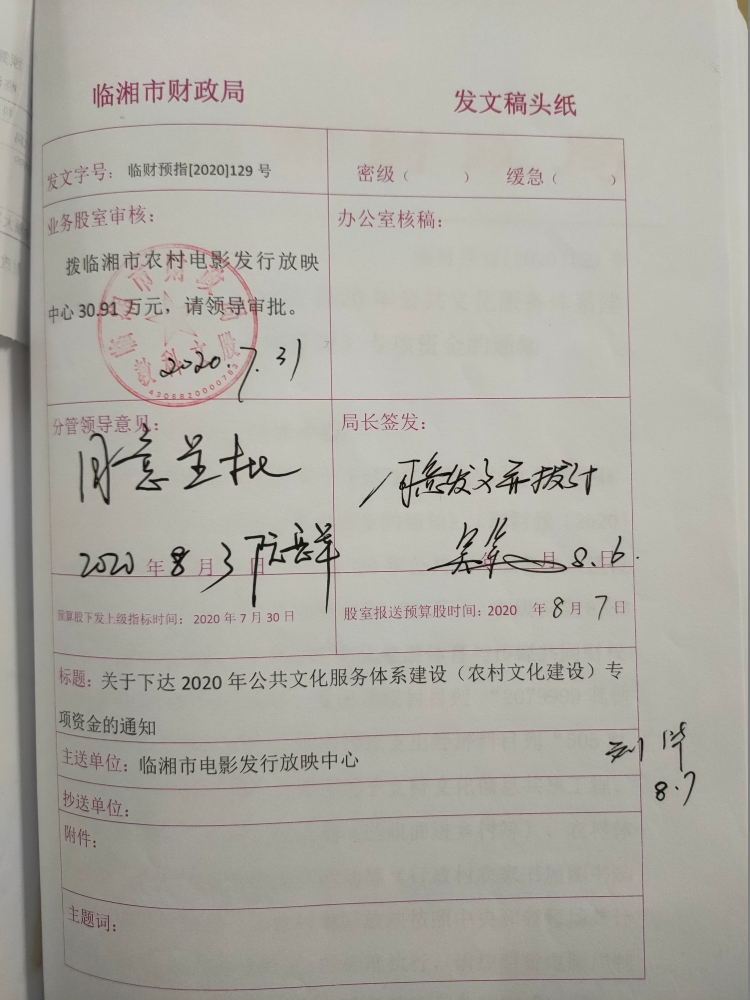 临湘市财政局 发文稿头纸
发文字号：临财预指[2020]129 号 密级（ ） 缓急（ ）
业务股室审核：
拨临湘市农村电影发行放映
中心 30.91 万元，请领导审批。
临湘市财政局
教科文股
2020.7.31
办公室核稿：
分管领导意见：
同意呈批
2020 年 8 月 3 日
局长签发：
同意发文并拨付
年 月 日
8.6.
预算股下发上级指标时间：2020 年 7 月 30 日
股室报送预算股时间：2020 年 8 月 7 日
标题：关于下达 2020 年公共文化服务体系建设（农村文化建设）专
项资金的通知
主送单位：临湘市电影发行放映中心
刘华
8.7
抄送单位：
附件：
主题词：